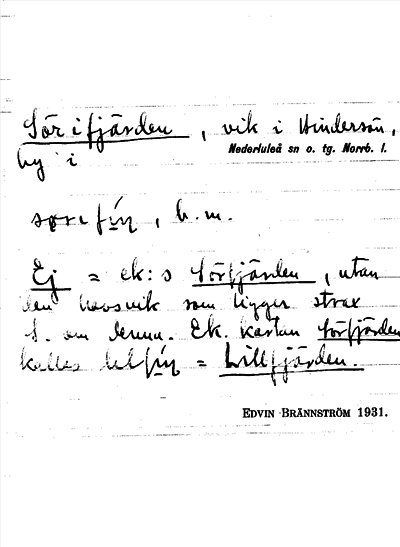 Sörifjärden, vik i Hindersön,
Nederluleå sn o. tg. Norrb. l.
by i
b.m.
Ej = ek:s Sörfjärden, utan
den havsvik som ligger strax
S. om denna. Ek. kartan Sörfjärden
kallas = Lillfjärden.
EDVIN BRÄNNSTRÖM 1931.